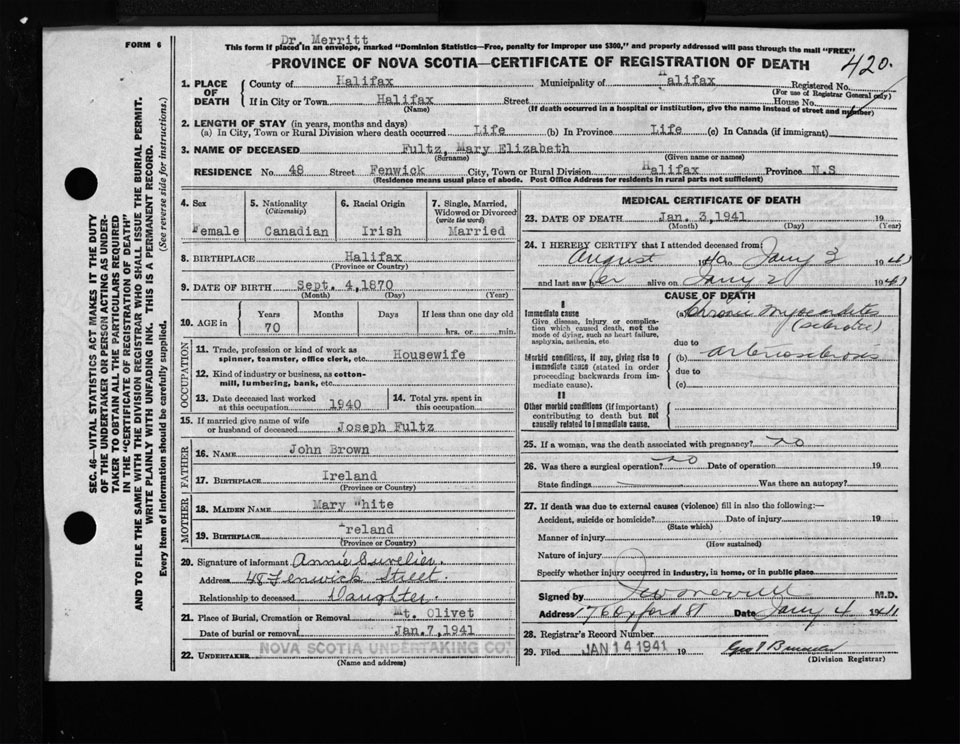 Dr. Merritt
FORM 6
This form if placed in an envelope, marked "Dominion Statistics—Free, penalty for improper use $300," and properly addressed will pass through the mail "FREE"
PROVINCE OF NOVA SCOTIA—CERTIFICATE OF REGISTRATION OF DEATH
420.
1. PLACE OF DEATH
County of Halifax Municipality of Halifax Registered No.
(For use of Registrar General only)
If in City or Town Halifax Street House No.
(Name) (If death occurred in a hospital or institution, give the name instead of street and number)
2. LENGTH OF STAY (in years, months and days)
(a) In City, Town or Rural Division where death occurred Life (b) In Province Life (c) In Canada (if immigrant)
3. NAME OF DECEASED Fultz, Mary Elizabeth
(Surname) (Given name or names)
RESIDENCE No. 48 Street Fenwick City, Town or Rural Division Halifax Province N.S
(Residence means usual place of abode. Post Office Address for residents in rural parts not sufficient)
4. Sex
Female
5. Nationality
(Citizenship)
Canadian
6. Racial Origin
Irish
7. Single, Married, Widowed or Divorced
(write the word)
Married
8. BIRTHPLACE Halifax
(Province or Country)
9. DATE OF BIRTH Sept. 4,1870
(Month) (Day) (Year)
10. AGE in Years Months Days If less than one day old
70 hrs. or min.
OCCUPATION
11. Trade, profession or kind of work as spinner, teamster, office clerk, etc. Housewife
12. Kind of industry or business, as cotton-mill, lumbering, bank, etc.
13. Date deceased last worked at this occupation 1940
14. Total yrs. spent in this occupation
15. If married give name of wife or husband of deceased Joseph Fultz
FATHER
16. NAME John Brown
17. BIRTHPLACE Ireland
(Province or Country)
MOTHER
18. MAIDEN NAME Mary White
19. BIRTHPLACE Ireland
(Province or Country)
20. Signature of informant Annie
Address 48 Fenwick Street.
Relationship to deceased Daughter.
21. Place of Burial, Cremation or Removal Mt. Olivet
Date of burial or removal Jan.7,1941
22. UNDERTAKER NOVA SCOTIA UNDERTAKING CO.
(Name and address)
MEDICAL CERTIFICATE OF DEATH
23. DATE OF DEATH Jan. 3,1941 19
(Month) (Day) (Year)
24. I HEREBY CERTIFY that I attended deceased from:
August 1940 to Jany 3 1941
and last saw her alive on Jany 2 1941
CAUSE OF DEATH
I
Immediate cause
Give disease, injury or complication which caused death, not the mode of dying, such as heart failure, asphyxia, asthenia, etc
(a) Chronic Myocarditis
(sclerotic)
due to
Morbid conditions, if any, giving rise to immediate cause (stated in order proceeding backwards from immediate cause).
(b) arteriosclerosis
due to
(c)
II
Other morbid conditions (if important) contributing to death but not causally related to immediate cause.
25. If a woman, was the death associated with pregnancy? no
26. Was there a surgical operation? no Date of operation 19
State findings Was there an autopsy?
27. If death was due to external causes (violence) fill in also the following:—
Accident, suicide or homicide? Date of injury 19
(State which)
Manner of injury
(How sustained)
Nature of injury
Specify whether injury occurred in industry, in home, or in public place
Signed by M.D.
Address 176 Oxford St Date Jany 4 1941
28. Registrar's Record Number
29. Filed JAN 14 1941 19
(Division Registrar)
SEC. 46—VITAL STATISTICS ACT MAKES IT THE DUTY
OF THE UNDERTAKER OR PERSON ACTING AS UNDER-
TAKER TO OBTAIN ALL THE PARTICULARS REQUIRED
IN THE "CERTIFICATE OF REGISTRATION OF DEATH"
AND TO FILE THE SAME WITH THE DIVISION REGISTRAR WHO SHALL ISSUE THE BURIAL PERMIT.
WRITE PLAINLY WITH UNFADING INK. THIS IS A PERMANENT RECORD.
Every item of information should be carefully supplied. (See reverse side for instructions.)